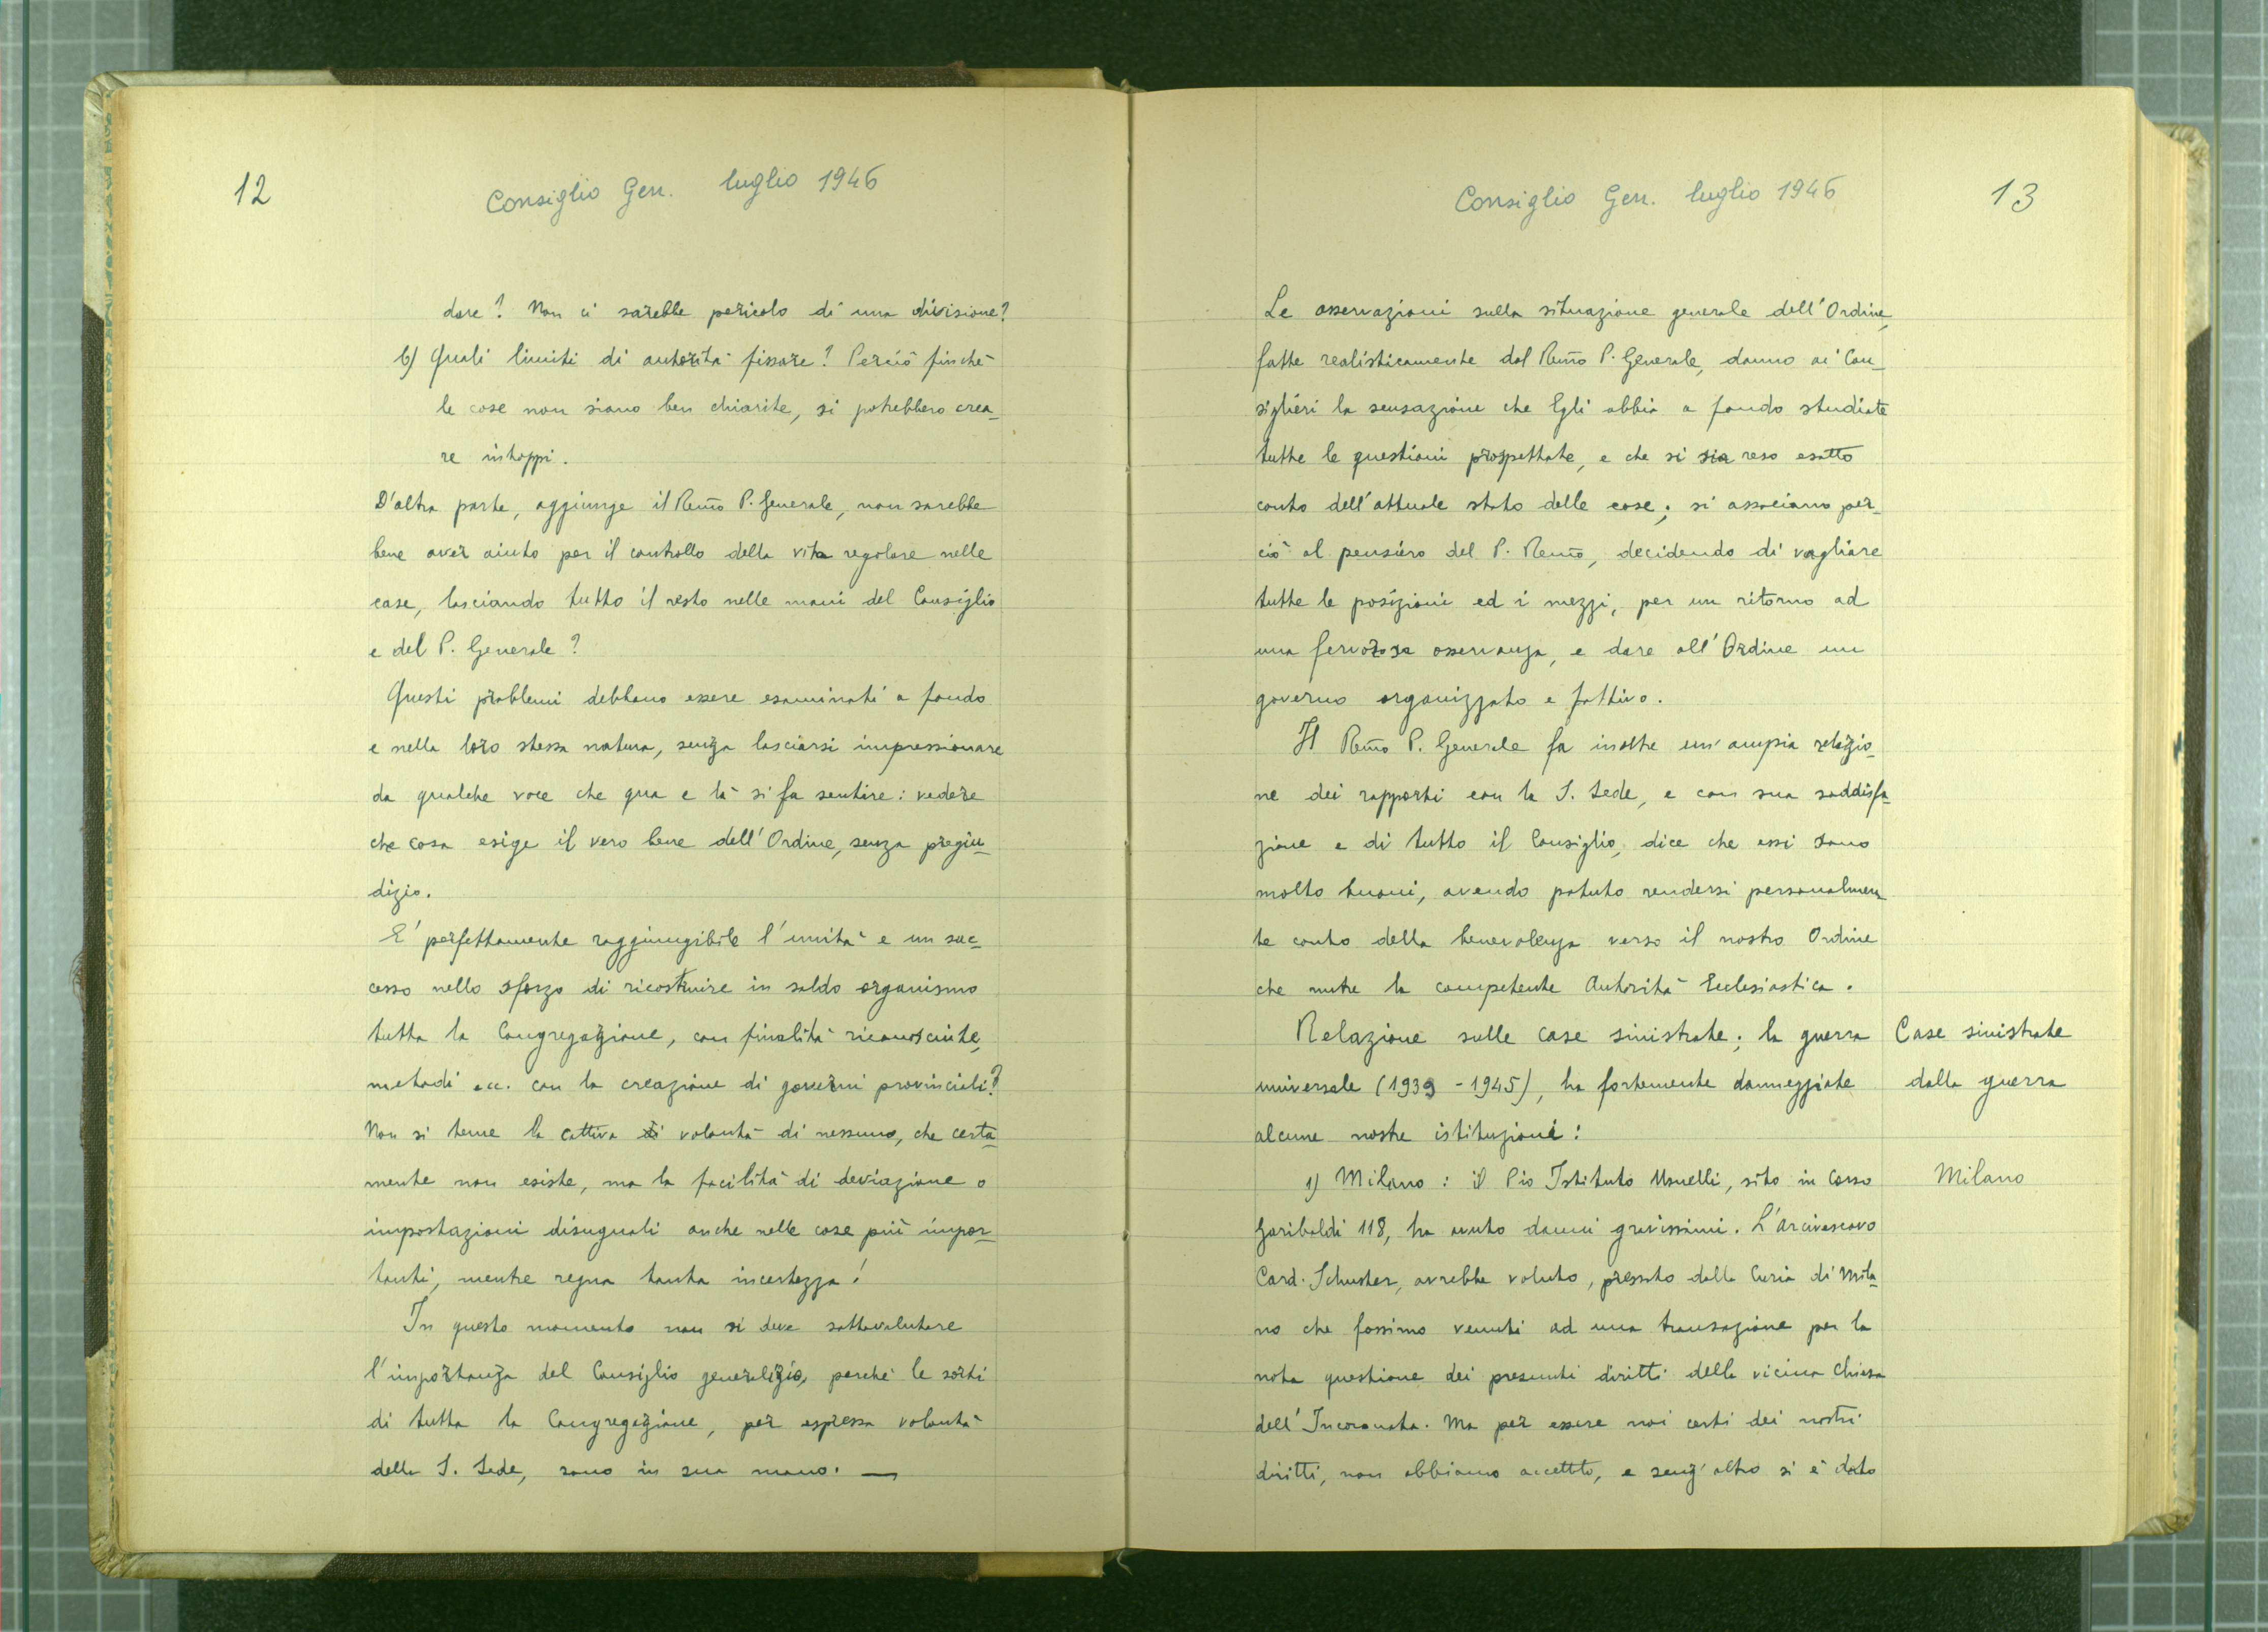 12
Consiglio Gen. luglio 1946
dare? Non ci sarebbe pericolo di una divisione?
b) Quali limiti di autorità fissare? Perciò finchè
le cose non siano ben chiarite, si potrebbero crea_
re intoppi.
D'altra parte, aggiunge il Rev̄mo P. Generale, non sarebbe
bene aver aiuto per il controllo della vita regolare nelle
case, lasciando tutto il resto nelle mani del Consiglio
e del P. Generale?
Questi problemi debbono essere esaminati a fondo
e nella loro stessa natura, senza lasciarsi impressionare
da qualche voce che qua e là si fa sentire: vedere
che cosa esige il vero bene dell'Ordine, senza pregiu_
dizio.
E' perfettamente raggiungibile l'unità e un suc_
cesso nello sforzo di ricostruire in saldo organismo
tutta la Congregazione, con finalità riconosciute,
metodi ecc. con la creazione di governi provinciali?
Non si teme la cattiva di volontà di nessuno, che certa_
mente non esiste, ma la facilità di deviazione o
impostazioni disuguali anche nelle cose più impor_
tanti, mentre regna tanta incertezza!
In questo momento non si deve sottovalutare
l'importanza del Consiglio generalizio, perchè le sorti
di tutta la Congregazione, per espressa volontà
della S. Sede, sono in sua mano. —
Consiglio Gen. luglio 1946
13
Le osservazioni sulla situazione generale dell'Ordine,
fatte realisticamente dal Rev̄mo P. Generale, danno ai Con_
siglieri la sensazione che Egli abbia a fondo studiate
tutte le questioni prospettate, e che si sia reso esatto
conto dell'attuale stato delle cose; si associano per_
ciò al pensiero del P. Rev̄mo, decidendo di vagliare
tutte le posizioni ed i mezzi, per un ritorno ad
una fervorosa osservanza, e dare all'Ordine un
governo organizzato e fattivo.
Il Rev̄mo P. Generale fa inoltre un'ampia relazio_
ne dei rapporti con la S. Sede, e con sua soddisfa_
zione e di tutto il Consiglio, dice che essi sono
molto buoni, avendo potuto rendersi personalmen_
te conto della benevolenza verso il nostro Ordine
che nutre la competente Autorità Ecclesiastica.
Relazione sulle case sinistrate; la guerra
Case sinistrate
universale (1939 - 1945), ha fortemente danneggiate
dalla guerra
alcune nostre istituzioni:
1) Milano: il Pio Istituto Usuelli, sito in Corso
Milano
Garibaldi 118, ha avuto danni gravissimi. L'Arcivescovo
Card. Schuster, avrebbe voluto, pressato dalla Curia di Mila_
no che fossimo venuti ad una transazione per la
nota questione dei presunti diritti della vicina Chiesa
dell'Incoronata. Ma per essere noi certi dei nostri
diritti, non abbiamo accettato, e senz'altro si è dato